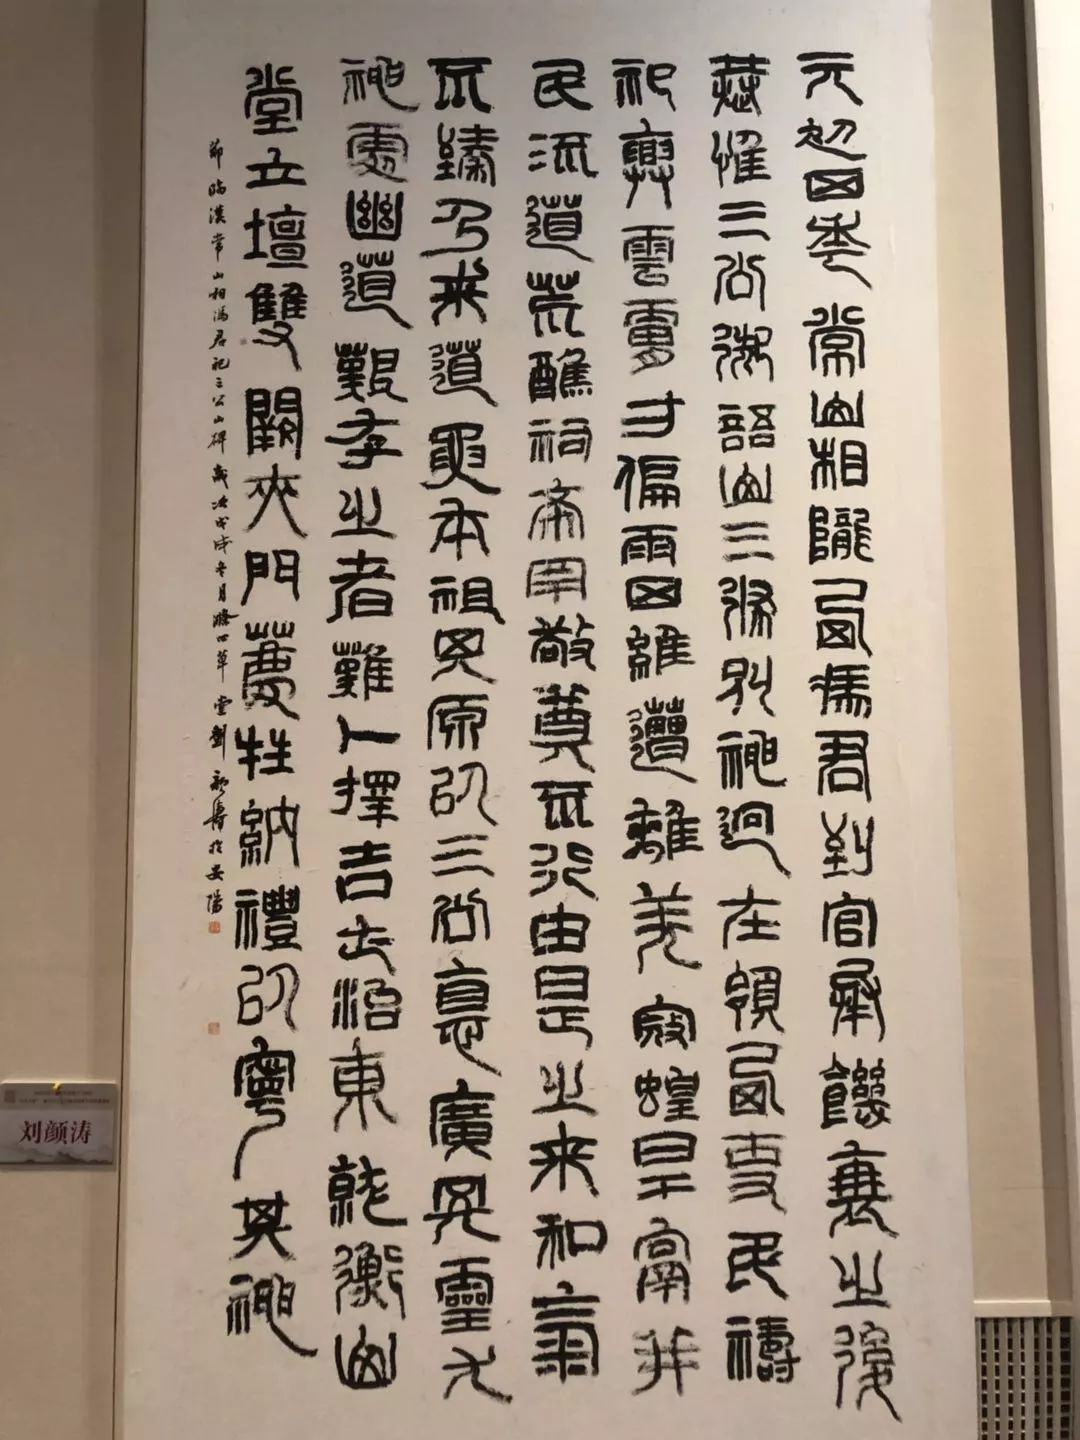 元初四年常山相隴西馮君到官承饑衰之後
惟三公御語山三條別神迥在領西吏民禱
祀興雲膚寸偏雨四維遭離羌寇蝗旱鬲并
民流道荒醮祠希罕敬奠不行由是之來和氣
不臻乃來道要本祖其原以三公德廣其靈尤
神處幽道艱存之者難卜擇吉土治東就衡山
堂立壇雙闕夾門薦牲納禮以寧其神
節臨漢常山相馮君祀三公山碑歲次戊戌冬月草堂劉顏濤於安陽
刘颜涛